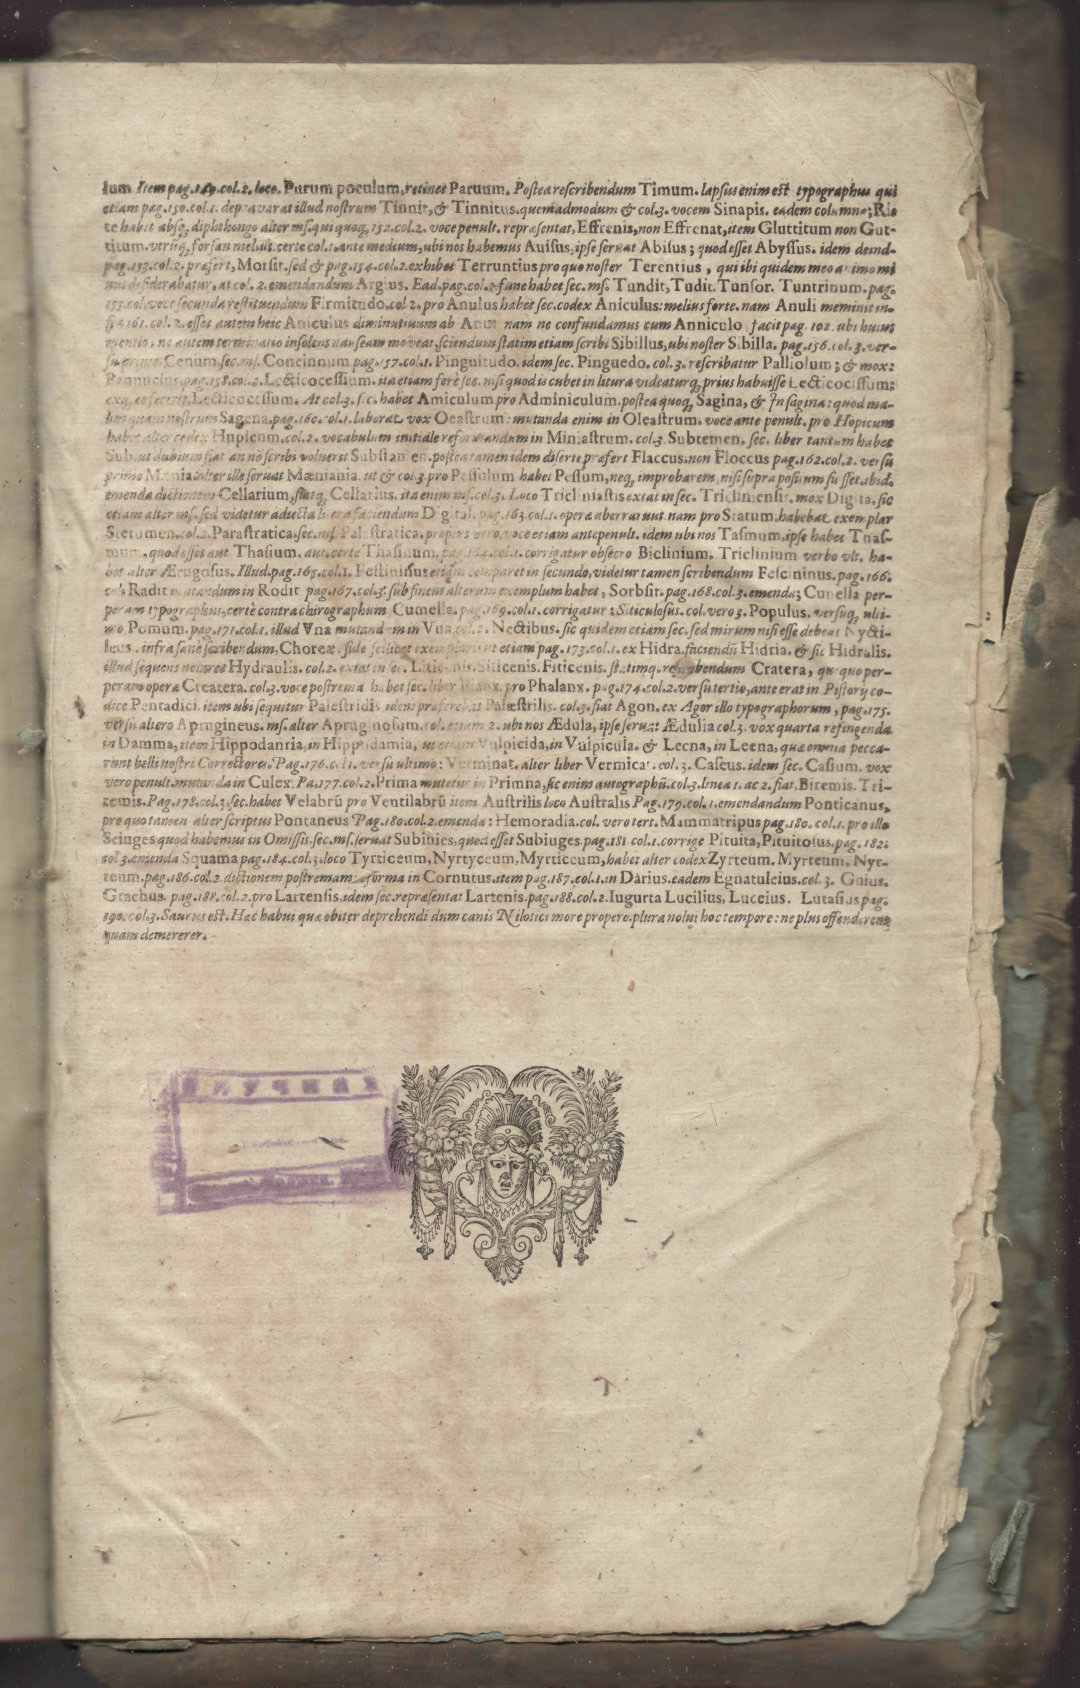 lum Item pag.149.col.2. loco. Purum poculum, retinet Paruum. Postea rescribendum Timum. lapsus enim est typographus qui
etiam pag.150.col.1. deprauarat illud nostrum Tinnit, & Tinnitus. quemadmodum & col.3. vocem Sinapis. eadem columna; Ri-
te habit absq; diphthongo alter ms. qui quoq; 152.col.2. voce penult. repræsentat, Effrenis, non Effrenat, item Gluttitum non Gut-
titum. vtrūq; forsan melius. certe col.1. ante medium, ubi nos habemus Auisus, ipse seruat Abisus; quod esset Abyssus. idem deind-
pag.153.col.2. præfert, Morsit. sed & pag.154.col.2. exhibet Terruntius pro quo noster Terentius, qui ibi quidem meo animo mi
nus desiderabatur. at col.2. emendandum Argius. Ead. pag. col.2. fune habet sec. ms. Tundit, Tudit. Tunsor. Tuntrinum. pag.
155.col. voce secunda restituendum Firmitudo. col.2. pro Anulus habet sec. codex Aniculus: melius forte. nam Anuli meminit in-
fra 161. col.2. esset autem heic Aniculus diminutiuum ab Anus nam ne confundamus cum Anniculo facit pag. 102. ubi huius
mentio. ne autem terminatio insolens nauseam moveat, sciendum statim etiam scribi Sibillus, ubi noster Sibilla. pag.156.col.3. ver-
su primo. Cenum. sec. ms. Concinnum pag.157.col.1. Pinguitudo. idem sec. Pinguedo. col.3. rescribatur Palliolum; & mox:
Pannucius. pag.158.col.2. Lecticocessium. ita etiam fere sec. nisi quod is cubet in litura videaturq; prius habuisse Lecticocissum;
exq; eo fecerit, Lecticocessum. At col.3. sec. habet Amiculum pro Adminiculum. postea quoq; Sagina, & In sagina: quod ma-
lim quam nostrum Sagena. pag.160.col.1. laborat vox Oeastrum: mutanda enim in Oleastrum. voce ante penult. pro Hopicum
habet alter codex Hupicum. col.2. vocabulum initiale reformandum in Miniastrum. col.3. Subtemen. sec. liber tantum habet
Sub. ut dubium fiat an nō scribi voluerit Substamen. postea tamen idem diserte præfert Flaccus. non Floccus pag.162.col.2. versu
primo Mænia. alter ille seruat Mæniania. ut & col.3. pro Pessolum habet Pessum, neq; improbarem, nisi supra positum fuisset. ibid.
emenda dictionem Cellarium, statq; Cellarius. ita enim ms. col.3. Loco Tricliniastis extat in sec. Tricliniensis. mox Digita. sic
etiam alter ms. sed videtur aducta litera faciendum Digital. pag.163.col.1. operæ aberrarunt. nam pro Statum. habebat exemplar
Stetumen. col.2. Parastratica. sec. ms. Palastratica. propers vero, voce etiam antepenult. idem ubi nos Tasmum. ipse habet Tnas-
mum. quod esset aut Thasium. aut certe Thasinum. pag.164.col.1. corrigatur obsecro Biclinium. Triclinium verbo vlt. ha-
bet alter Ærugosus. Illud. pag.165.col.1. Festininus etiam comparet in secundo, videtur tamen scribendum Fescininus. pag.166.
col. Radit mutandum in Rodit pag.167.col.3. sub finem alterum exemplum habet, Sorbsit. pag.168.col.3. emenda; Cunella per-
peram typographus, certè contra chirographum Cumella. pag.169.col.1. corrigatur: Siticulosus. col. vero 3. Populus. versuq; ulti-
mo Pomum. pag.171.col.1. illud Vna mutandum in Vua. col.2. Nectibus. sic quidem etiam sec. sed mirum nisi esse debeat Nycti-
leus. infra sane scribendum, Choreæ. fide scilicet exemplarium. et etiam pag.173.col.1. ex Hidra. faciendū Hidria. & sic Hidralis.
illud sequens notares Hydraulis. col.2. extat in sec. Liticenis. Siticenis. Fiticenis. statimq. rescribendum Cratera, quæ quo per-
peram opera Createra. col.3. voce postrema habet sec. liber Planx. pro Phalanx. pag.174.col.2. versu tertio, ante erat in Pistorij co-
dice Pentadici. item ubi sequitur Palestridis idem præferebat Palæstrilis. col.3. fiat Agon. ex Agor illo typographorum, pag.175.
versu altero Aprugineus. ms. alter Apruginosum. col. etiam 2. ubi nos Ædula, ipse seruat Ædulia col.3. vox quarta refingenda
in Damma, item Hippodanria, in Hippodamia, ut etiam Vulpicida, in Vulpicula. & Lecna, in Leena, quæ omnia pecca-
runt belli nostri Correctores. Pag.176.col.1. versu ultimo: Verminat. alter liber Vermicat. col.3. Caseus. idem sec. Casium. vox
vero penult. mutanda in Culex. Pa.177.col.2. Prima mutetur in Primna, sic enim autographū. col.3. linea 1. ac 2. fiat. Biremis. Tri-
remis. Pag.178.col.3. sec. habet Velabrū pro Ventilabrū item Austrilis loco Australis Pag.179.col.1. emendandum Ponticanus,
pro quo tamen alter scriptus Pontaneus Pag.180.col.2. emenda: Hemoradia. col. vero tert. Mammatripus pag.180.col.1. pro illo
Seiuges quod habemus in Omissis. sec. ms. seruat Subiuies, quod esset Subiuges. pag.181 col.1. corrige Pituita, Pituitosus. pag.182.
col 3. emenda Squama pag.184.col.3. loco Tyrticeum, Nyrtyceum, Myrticeum, habet alter codex Zyrteum. Myrteum. Nyr-
teum. pag.186.col.2. dictionem postremam reforma in Cornutus. item pag.187.col.1. in Darius. eadem Egnatuleius. col.3. Gnius.
Grachus. pag.188.col.2. pro Lartensis, idem sec. repræsentat Lartenis. pag.188.col.2. Iugurta Lucilius, Luceius. Lutasius pag.
190.col.3. Saurus est. Hæc habui quæ obiter deprehendi dum canis Nilotici more propero. plura nolui hoc tempore: ne plus offenderem
quam demererer.
НАУЧНАЯ